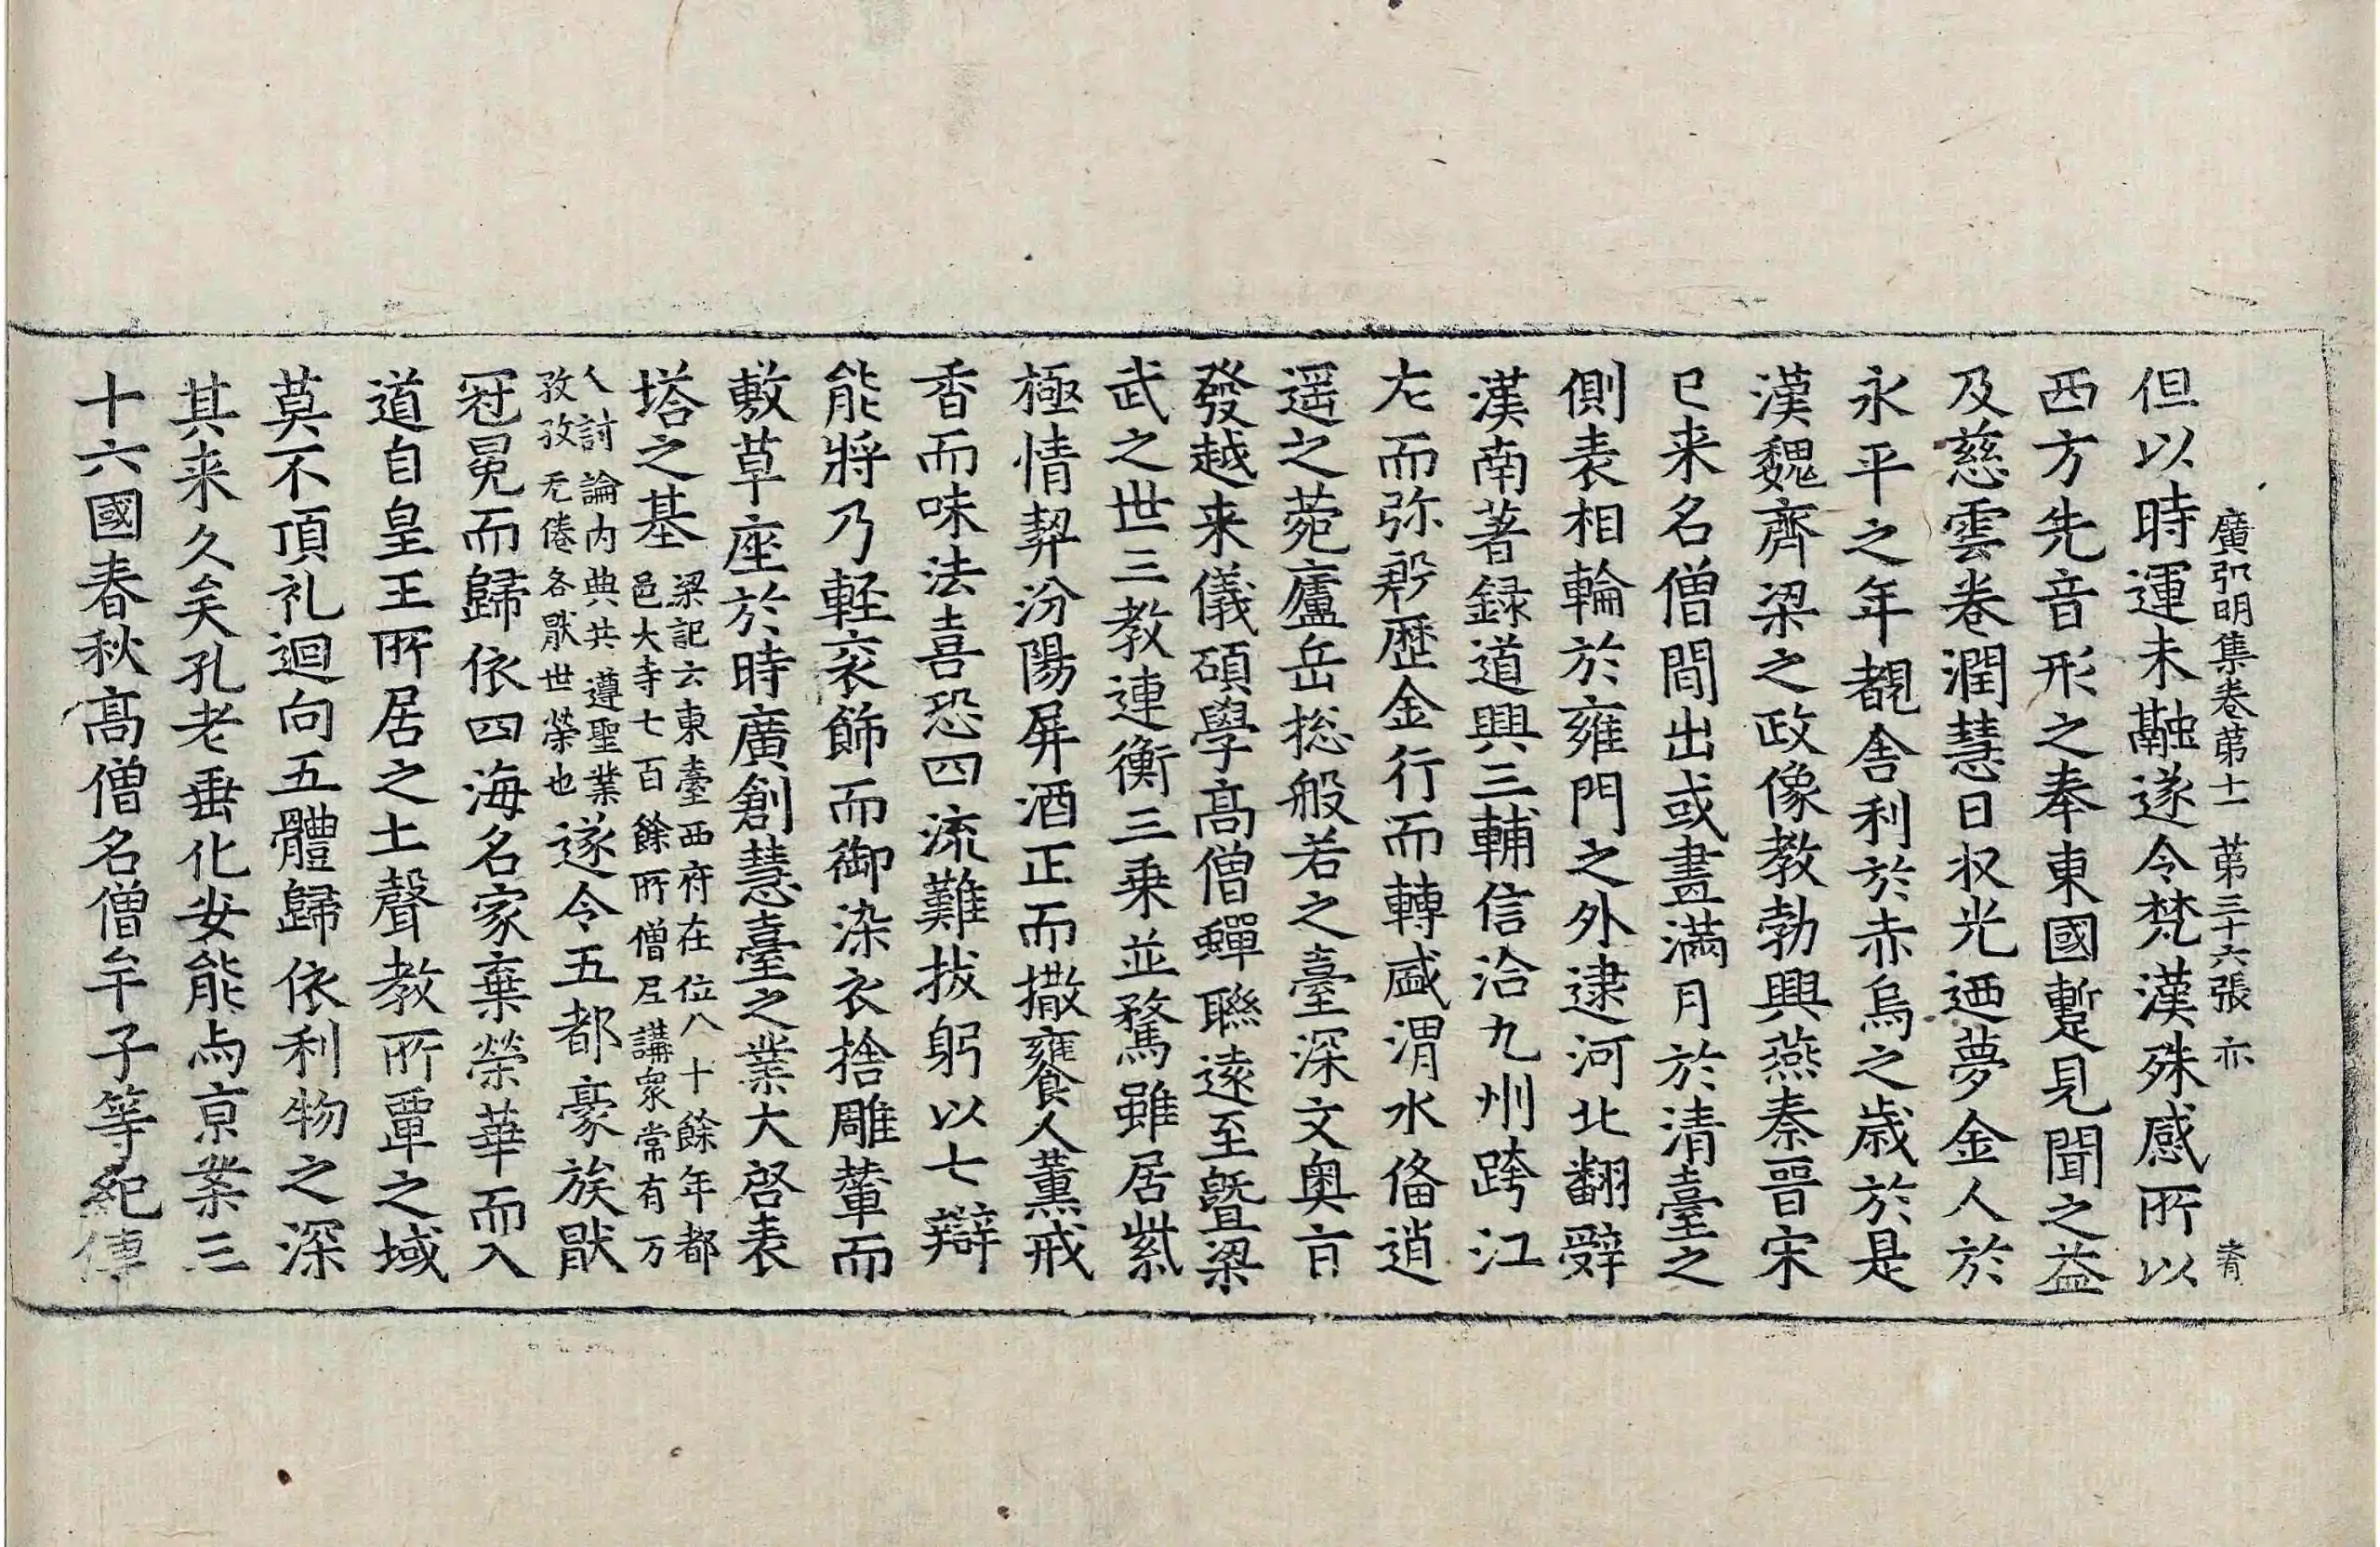 廣弘明集卷第十一 第三十六張 亦 青
但以時運未融遂令梵漢殊感所以
西方先音形之奉東國蹔見聞之益
及慈雲卷潤慧日収光迺夢金人於
永平之年覩舎利於赤烏之歳於是
漢魏齊梁之政像教勃興燕秦晋宋
已来名僧間出或畫滿月於清臺之
側表相輪於雍門之外逮河北翻辤
漢南著録道興三輔信洽九州跨江
左而弥殷歴金行而轉盛渭水俻逍
遥之菀廬岳揔般若之臺深文奥旨
發越来儀碩學髙僧蟬聯遠至曁梁
武之世三教連衡三乗並騖雖居紫
極情契汾陽屏酒正而撒饔人薰戒
香而味法喜恐四流難拔躬以七辯
能將乃軽衮飾而御染衣捨雕輦而
敷草座於時廣創慧臺之業大啓表
塔之基
梁記云東臺西府在位八十餘年都
邑大寺七百餘所僧尼講衆常有万
人討論内典共遵聖業
孜孜无倦各厭世榮也
遂令五都豪族厭
冠冕而歸依四海名家棄榮華而入
道自皇王所居之土聲教所覃之域
莫不頂礼迴向五體歸依利物之深
其来久矣孔老垂化安能与京業三
十六國春秋髙僧名僧牟子等紀傳